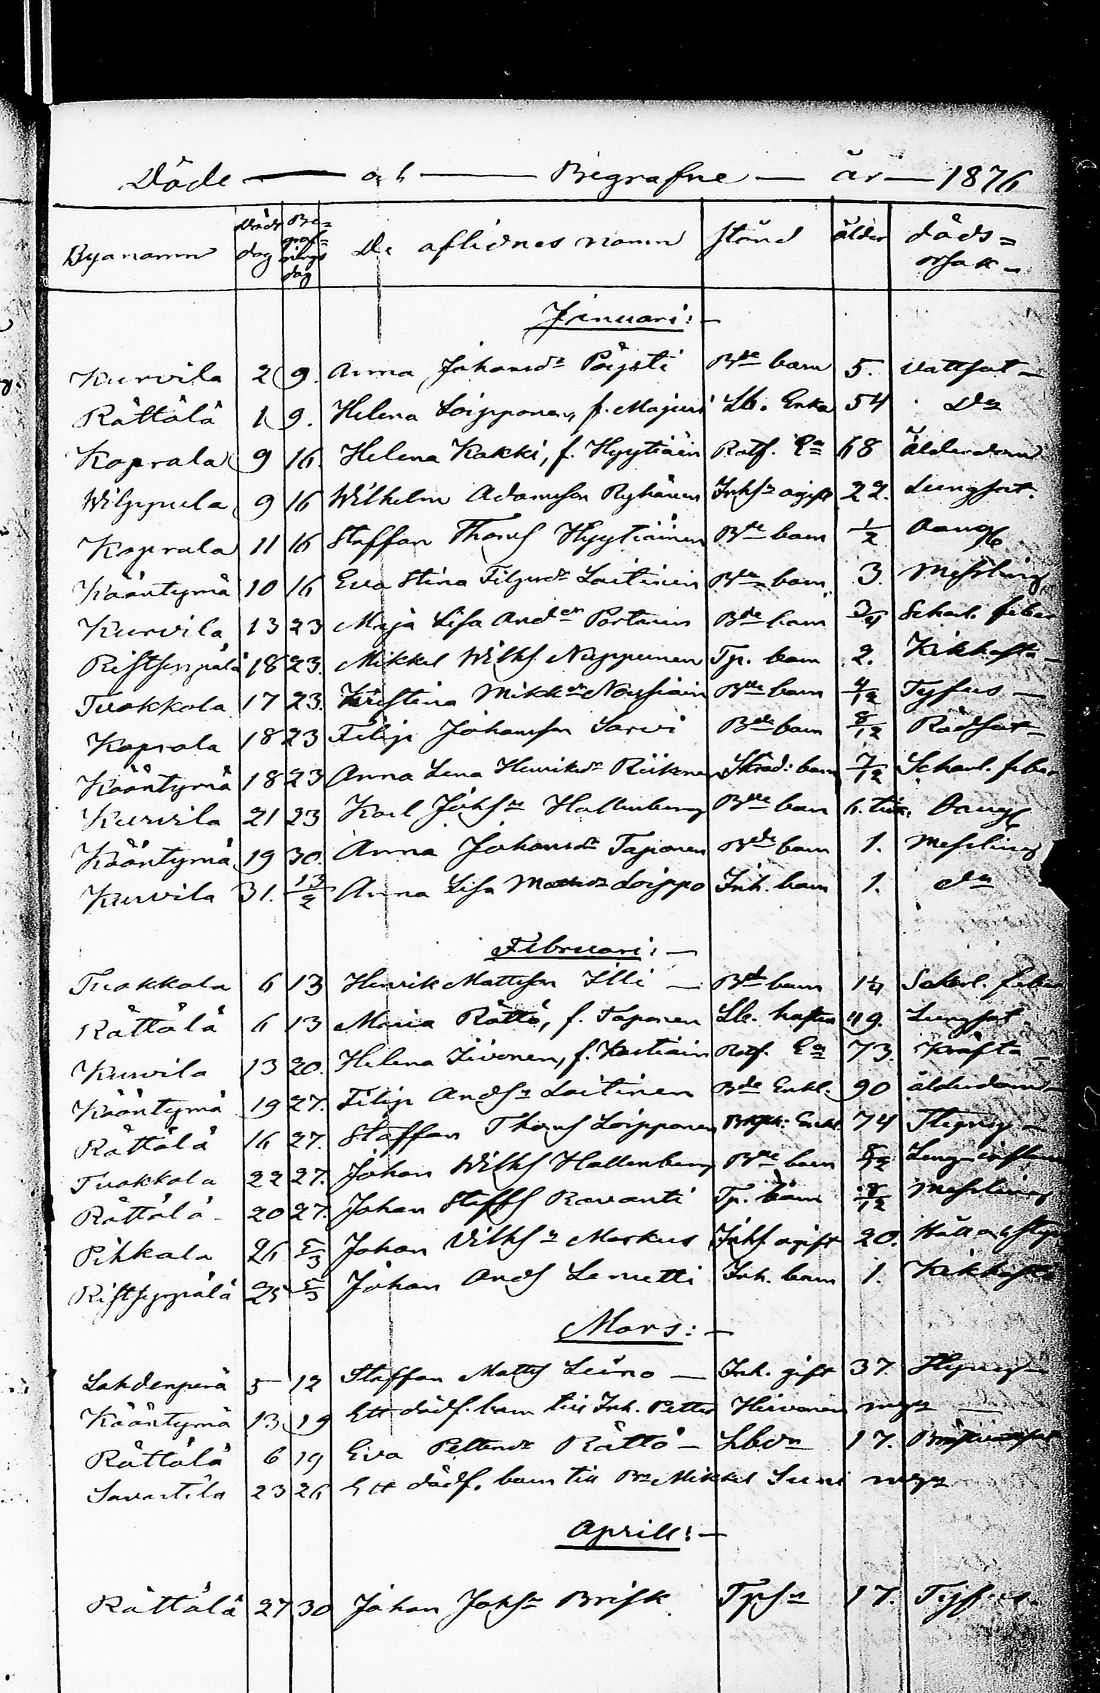 Döde — och — Begrafne — år — 1876
Byanamn Döds dag Begrafnings dag De aflidnes namn Stånd ålder döds=orsak
Januari:—
Kurvila 2 9. Anna Johansdr Pöysti Bde barn 5. Vattsot
Rättälä 1 9. Helena Loipponen, f. Majuri Lb. Enka 54 Do
Koprala 9 16. Helena Kakki, f. Hyytiäin Rotf. Ea 68 ålderdom
Wilppula 9 16 Wilhelm Adamsson Ryhänen Inhsn ogift 22. Lungsot.
Koprala 11 16 Staffan Thoms Hyytiäinen Bde barn 1/2
Kääntymä 10 16 Eva Stina Filipsdr Laitinen Bde barn 3. Messling
Kurvila 13 23 Maja Lisa Andrn Portanen Bde barn 3/4 Scharl. feber
Ristseppälä 18 23. Mikkel Wilhs Nuppunen Tp. barn 2. Kikhosta
Tuokkola 17 23. Kristina Mikkdr Noysiäin Bde barn 4/12 Tyfus —
Koprala 18 23 Filip Johansson Sarvi Bde barn 8/12 Rödsot
Kääntymä 18 23 Anna Lena Henriksdr Riikonen Skräd: barn 7/12 Scharl. feber
Kurvila 21 23 Karl Johsn Hallenberg Bde barn 6. tim:
Kääntymä 19 30. Anna Johansdr Taponen Bde barn 1. Messling
Kurvila 31. 13/2 Anna Lisa Loippo Inh. barn 1. do
Februari:—
Tuokkola 6 13 Henrik Mattsson Illi — Bde barn 1¼ Scharl. feber
Rättälä 6 13 Maria Rättö, f. Taponen Lb. hustru 49. Lungsot
Kurvila 13 20. Helena Iivonen, f. Kastiain Rotf. Ea 73. Kräfta —
Kääntymä 19 27. Filip Andsn Laitinen Bde Enkl. 90 ålderdom
Rättälä 16 27. Staffan Thoms Loipponen Enkl 74
Tuokkola 22 27. Johan Wilhs Hallenberg Bde barn
Rättälä 20 27. Johan Staffs Ravanti Tp. barn 8/12 Messling
Pihkala 26 5/3 Johan Vilhsn Markus Inhs ogift 20. Håll och styng
Ristseppälä 25 5/3 Johan Ands Lemetti Inh. barn 1. Kikhosta
Mars:—
Lahdenperä 5 12 Staffan Matts Leino — Inh. gift 37.
Kääntymä 13. 19 Ett dödf. barn till Inh. Petter Hiivonen —
Rättälä 6 19 Eva Pettersdr Rättö — Lbdr 17.
Suvartila 23 26 Ett dödf. barn till Bn Mikkel Suni
Aprill:—
Rättälä 27 30 Johan Johsn Brisk Tpsn 17. Tyfus.